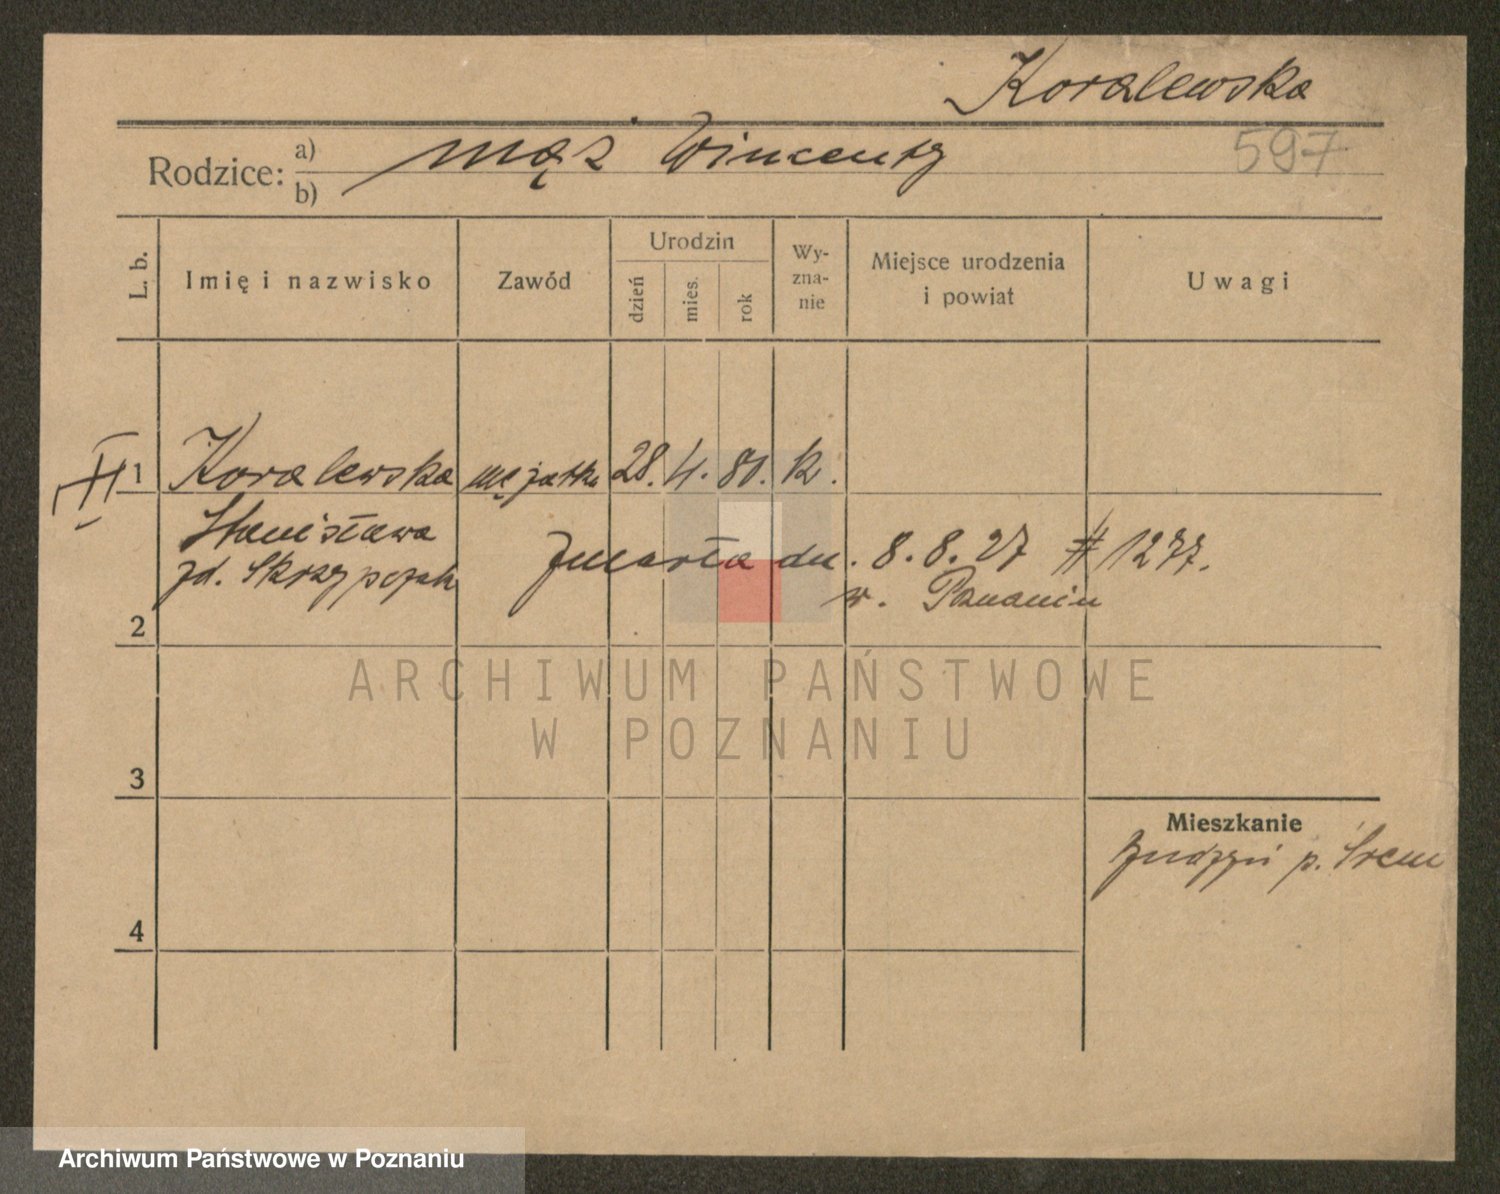 Koralewska
597
Rodzice: a) mąż Wincenty
b)
L. b. Imię i nazwisko Zawód Urodzin dzień mies. rok Wy-zna-nie Miejsce urodzenia i powiat Uwagi
II 1 Koralewska mężatka 28. 4. 80. k.
Stanisława
zd. Skrzypczak
zmarła dn. 8. 8. 27 # 1277.
w. Poznaniu
2
ARCHIWUM PAŃSTWOWE
W POZNANIU
3
Mieszkanie
p. Śrem
4
Archiwum Państwowe w Poznaniu